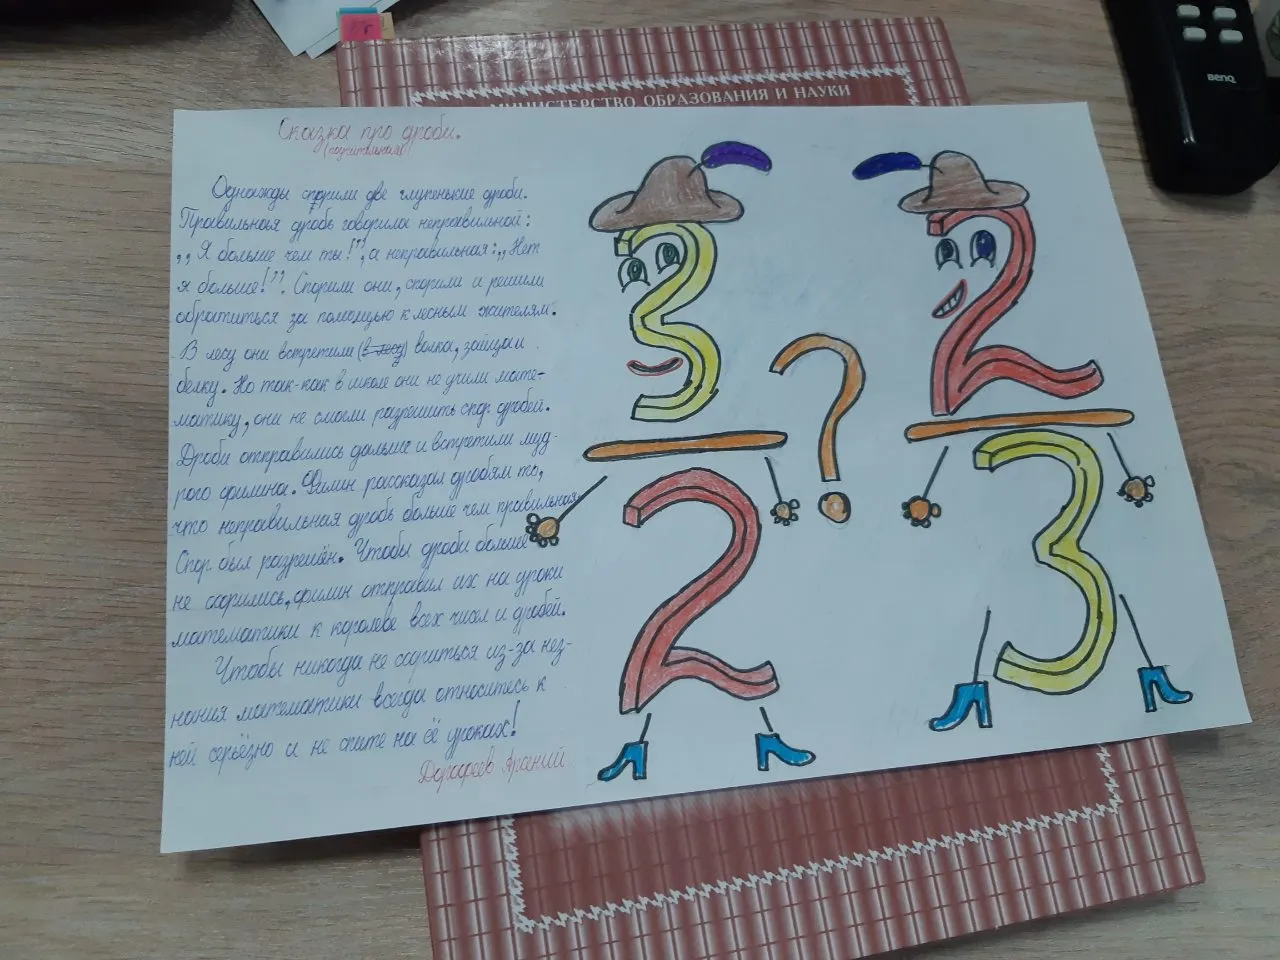 МИНИСТЕРСТВО ОБРАЗОВАНИЯ И НАУКИ
BENQ
Сказка про дроби.
(поучительная)
Однажды спорили две глупенькие дроби.
Правильная дробь говорила неправильной:
,,Я больше чем ты!”, а неправильная: ,,Нет
я больше!”. Спорили они, спорили и решили
обратиться за помощью к лесным жителям.
В лесу они встретили (в лесу) волка, зайца и
белку. Но так-как в школе они не учили мате-
матику, они не смогли разрешить спор дробей.
Дроби отправились дальше и встретили муд-
рого филина. Филин рассказал дробям то,
что неправильная дробь больше чем правильная
Спор был разрешён. Чтобы дроби больше
не ссорились, филин отправил их на уроки
математики к королеве всех чисел и дробей.
Чтобы никогда не ссориться из-за нез-
нания математики всегда относитесь к
ней серьёзно и не спите на её уроках!
Дорофеев Арсений
3
2
?
2
3